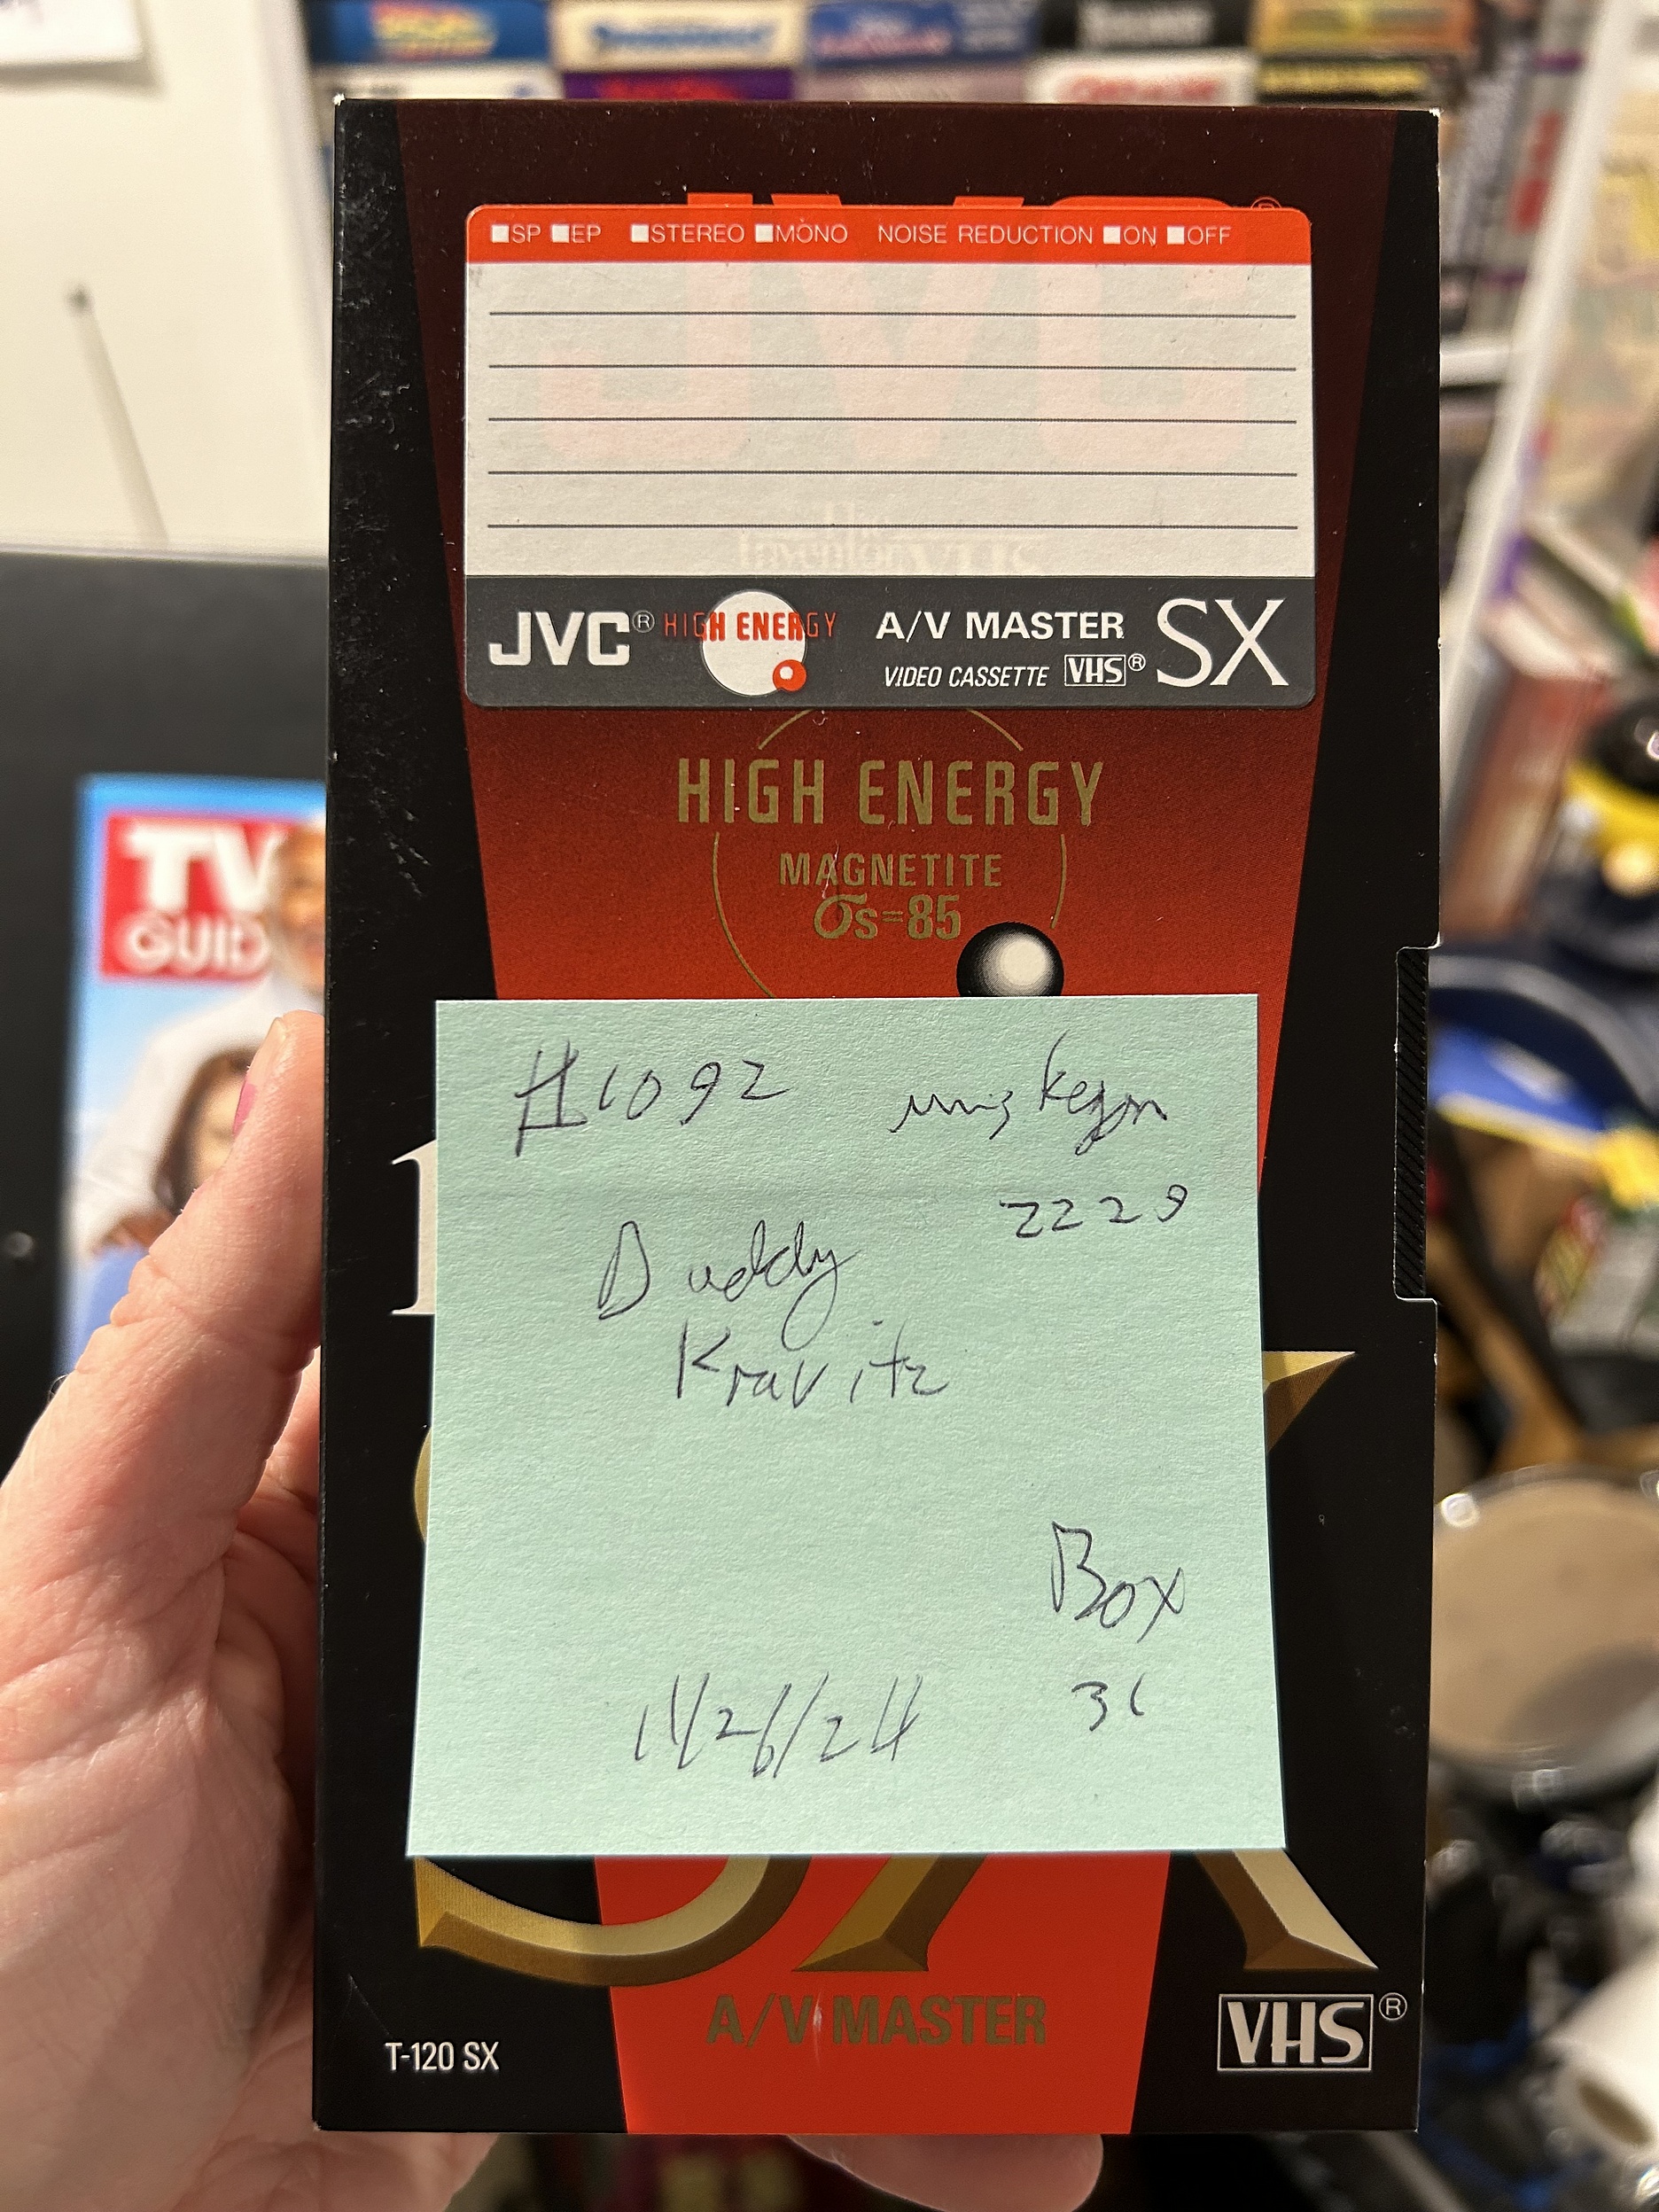 SP EP STEREO MONO NOISE REDUCTION ON OFF
JVC® HIGH ENERGY A/V MASTER SX
VIDEO CASSETTE VHS®
HIGH ENERGY
MAGNETITE
σs=85
TV
GUID
#1092 muskegon
2229
Buddy
Kravitz
Box
36
11/26/24
A/V MASTER
T-120 SX
VHS®